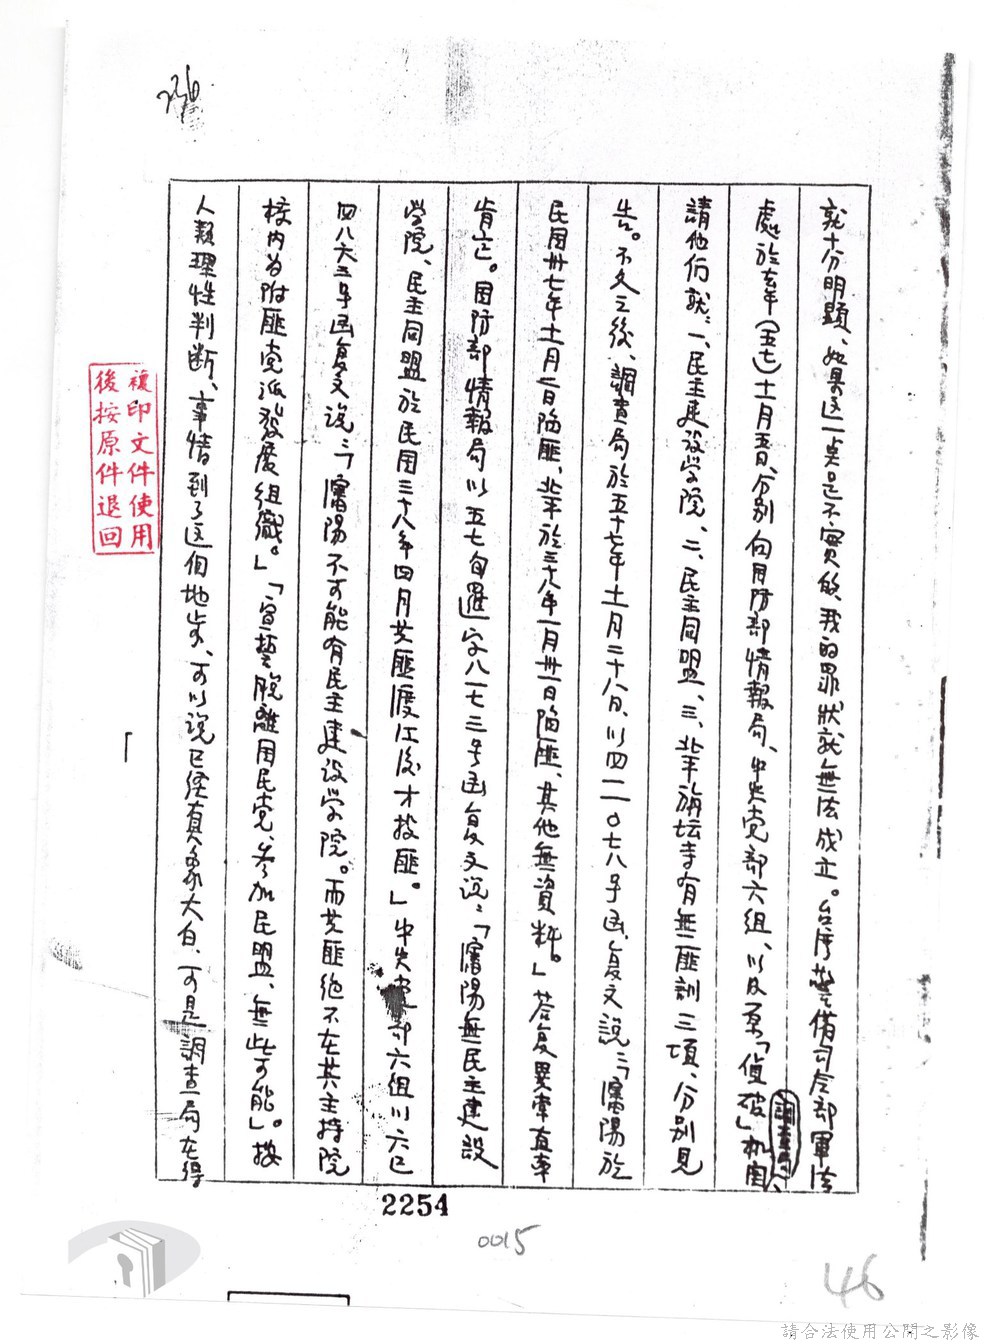 236
就十分明顯、如果这一点是不實的、我的罪狀就無法成立。台湾警備司令部軍法
處於去年(五七)十一月五日、分别向国防部情報局、中央党部六組、以及原「偵破」机関
調查局、
請他们就:一、民主建设学院、二、民主同盟、三、北平旃坛寺有無匪訓三項、分别見
告。不久之後、調查局於五十七年十一月二十八日、以四二一〇七八号函、复文説:「瀋陽於
民国卅七年十一月一日陷匪、北平於三十八年一月卅一日陷匪、其他無資料。」答复異常直率
肯定。国防部情報局以五七旬暹字八一七三号函复文说:「瀋陽無民主建設
学院、民主同盟於民国三十八年四月共匪渡江後才投匪。」中央党部六組以六巳
四八六三号函复文说:「瀋陽不可能有民主建设学院。而共匪絶不在其主持院
校内为附匪党派發展組織。」「宣誓脫離国民党、参加民盟、無此可能」。按
人類理性判断、事情到了这個地步、可以说已经真象大白、可是調查局在得
複印文件使用
後按原件退回
2254
0015
46
請合法使用公開之影像